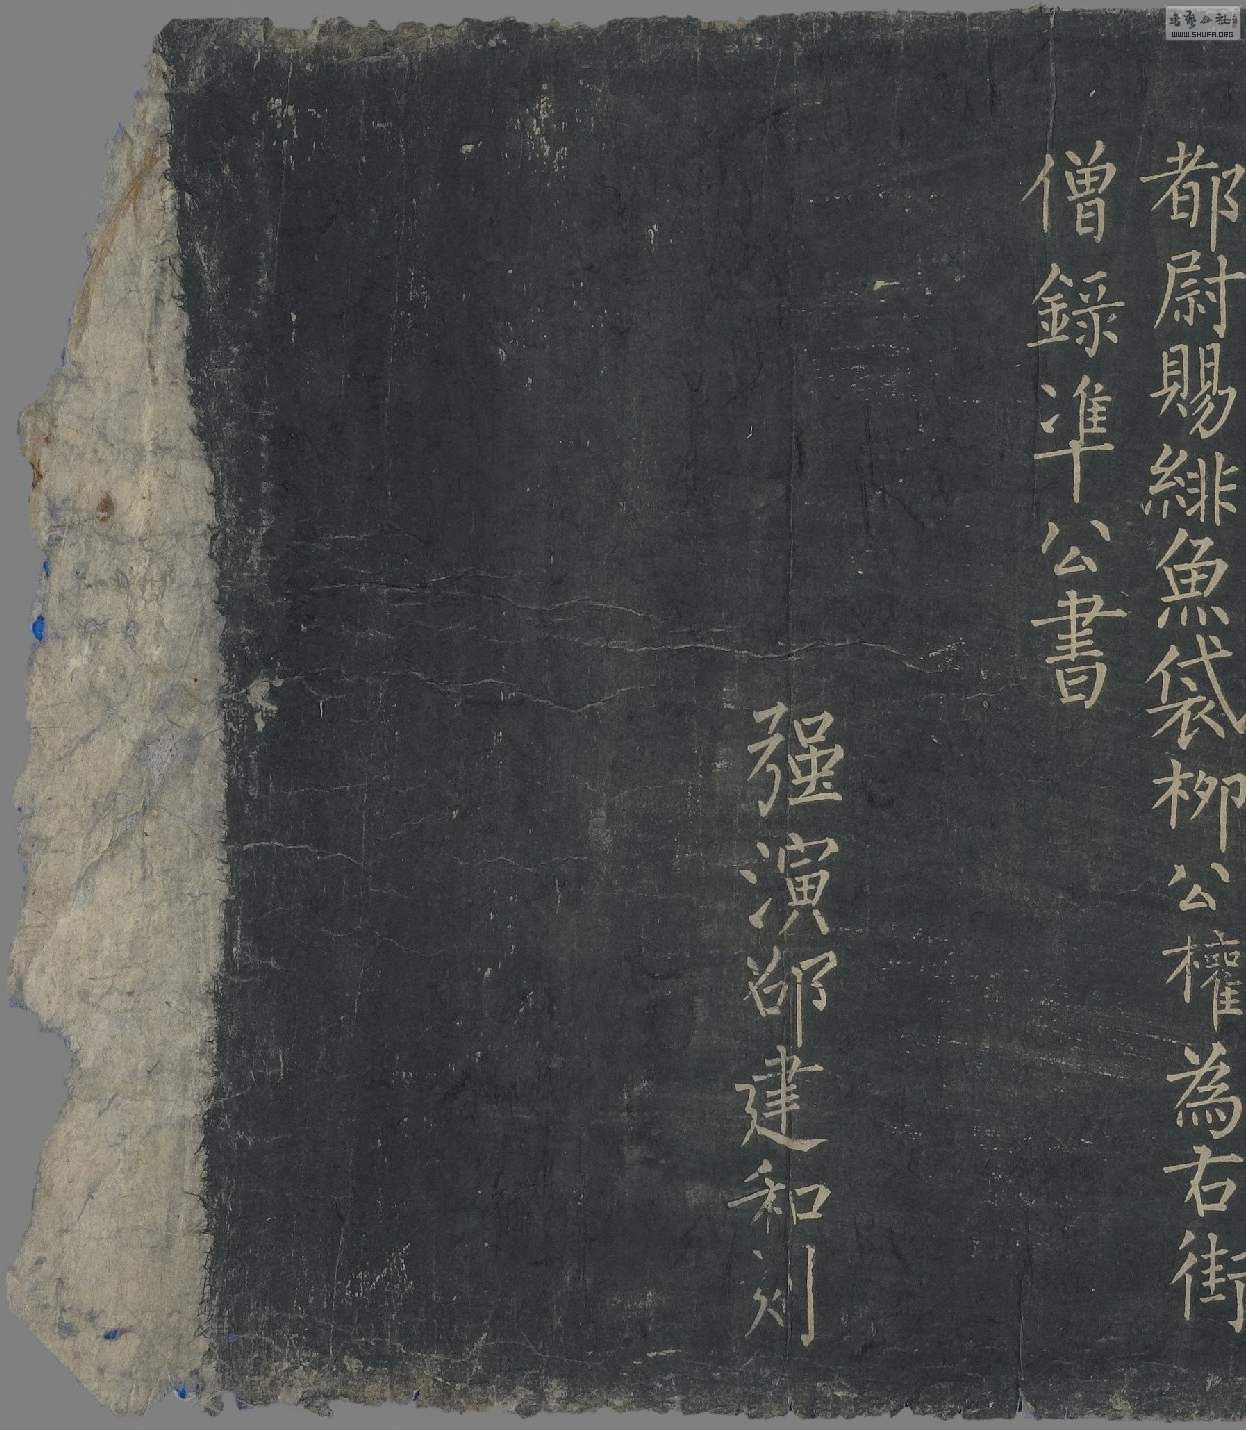 都尉賜緋魚袋柳公權為右街
僧録準公書
强演邵建和刻
書藝公社
WWW.SHUFA.ORG